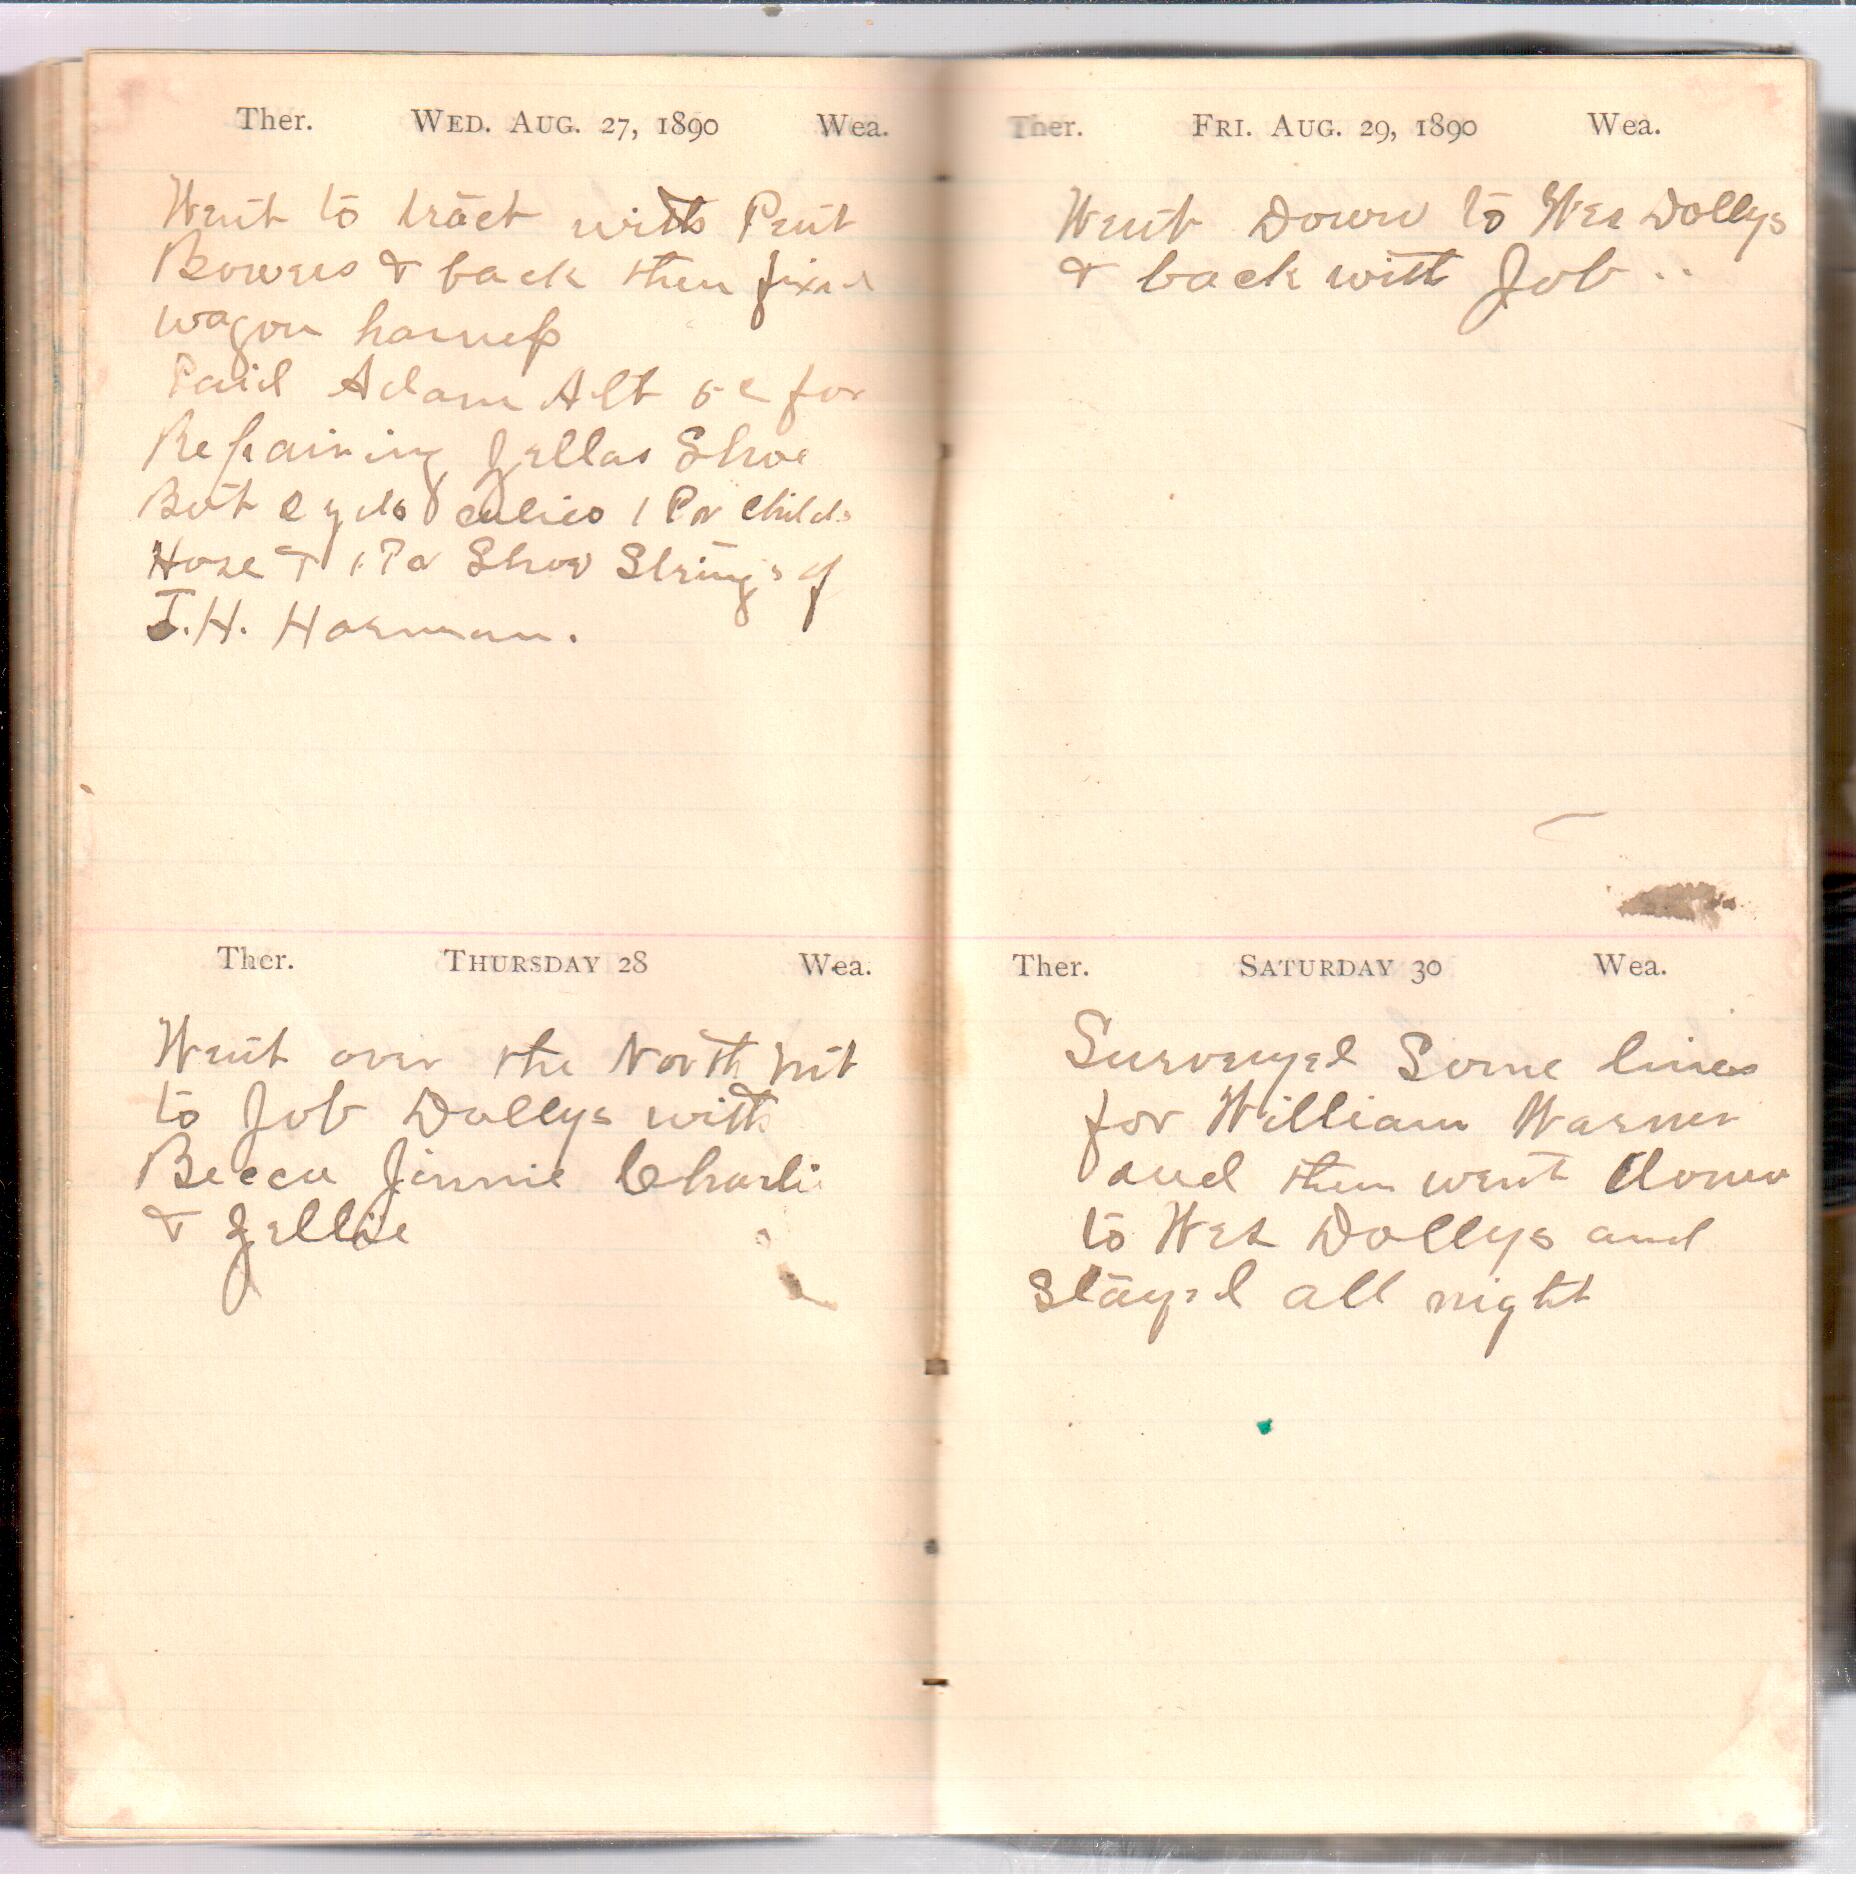 Ther. WED. AUG. 27, 1890 Wea.
Went to tract with Pent
Bowers & back then fixed
wagon harness
Paid Adam Alt 5c for
Repairing Zellas Shoe
Bot yds calico 1 Pr Childs
Hose & 1 Pr Shoe Strings of
J.H. Harman.
Ther. THURSDAY 28 Wea.
Went over the North Mt
to Job Dollys with
Becca Jinnie Charli
& Zellie
Ther. FRI. AUG. 29, 1890 Wea.
Went Down to Wes Dollys
& back with Job ..
Ther. SATURDAY 30 Wea.
Surveyed Some lines
for William Warner
and then went down
to Wes Dollys and
Stayed all night